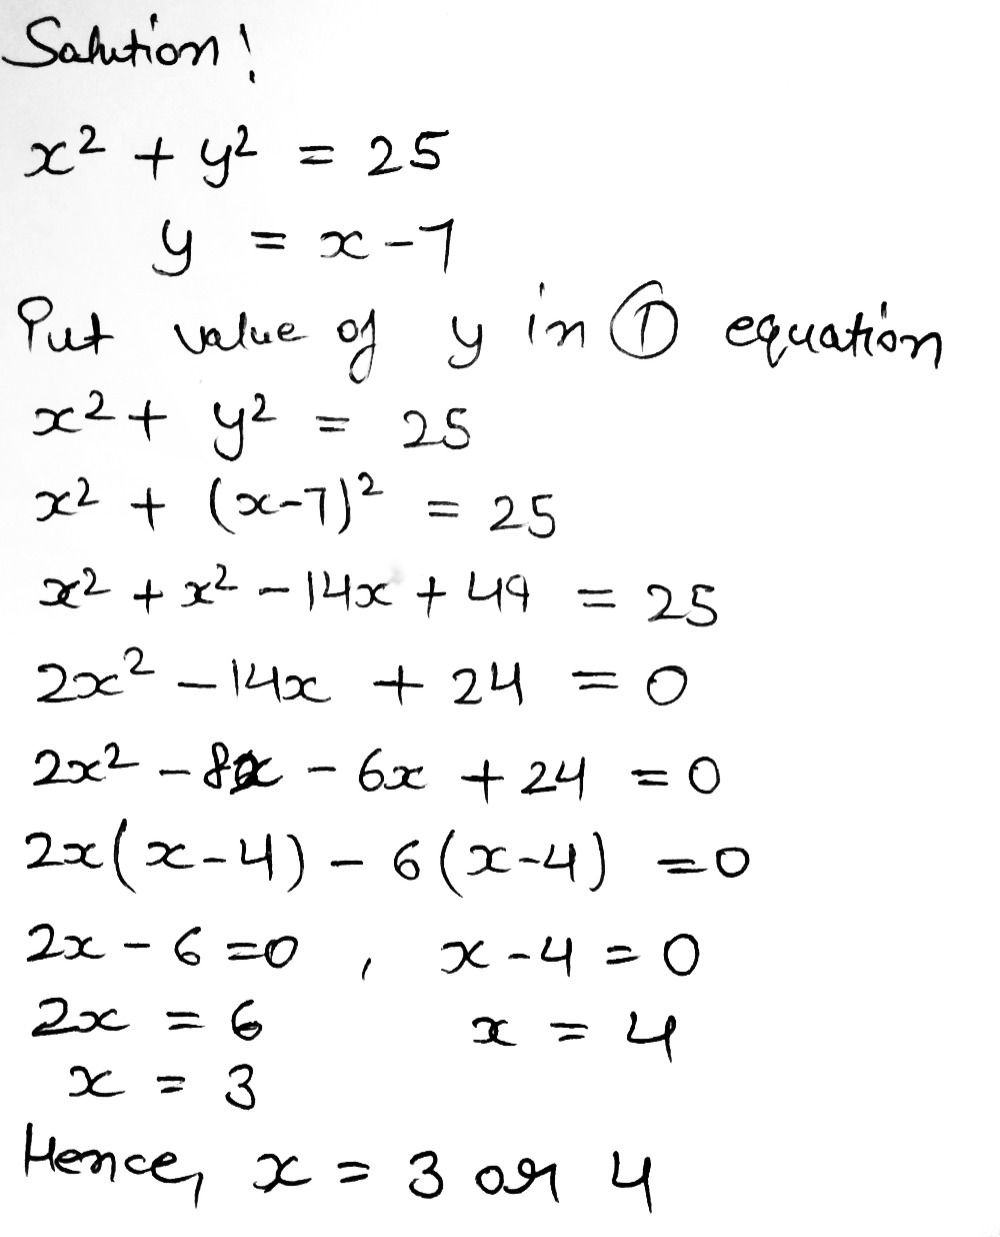 Salution!
x² + y² = 25
y = x - 7
Put value of y in ① equation
x² + y² = 25
x² + (x-7)² = 25
x² + x² - 14x + 49 = 25
2x² - 14x + 24 = 0
2x² - 8x - 6x + 24 = 0
2x(x-4) - 6(x-4) = 0
2x - 6 = 0 , x - 4 = 0
2x = 6 x = 4
x = 3
Hence, x = 3 or 4